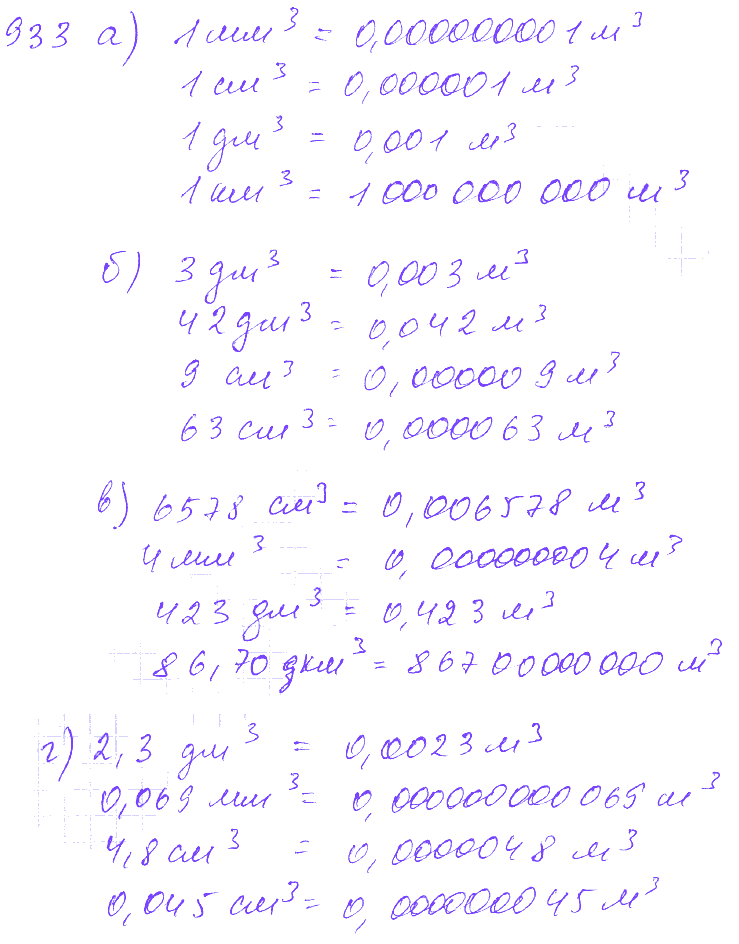 933 а) 1 мм³ = 0,000000001 м³
1 см³ = 0,000001 м³
1 дм³ = 0,001 м³
1 км³ = 1 000 000 000 м³
б) 3 дм³ = 0,003 м³
42 дм³ = 0,042 м³
9 см³ = 0,000009 м³
63 см³ = 0,000063 м³
в) 6578 см³ = 0,006578 м³
4 мм³ = 0,000000004 м³
423 дм³ = 0,423 м³
86,70 дкм³ = 86700000000 м³
г) 2,3 дм³ = 0,0023 м³
0,069 мм³ = 0,000000000069 м³
4,8 см³ = 0,0000048 м³
0,045 см³ = 0,000000045 м³